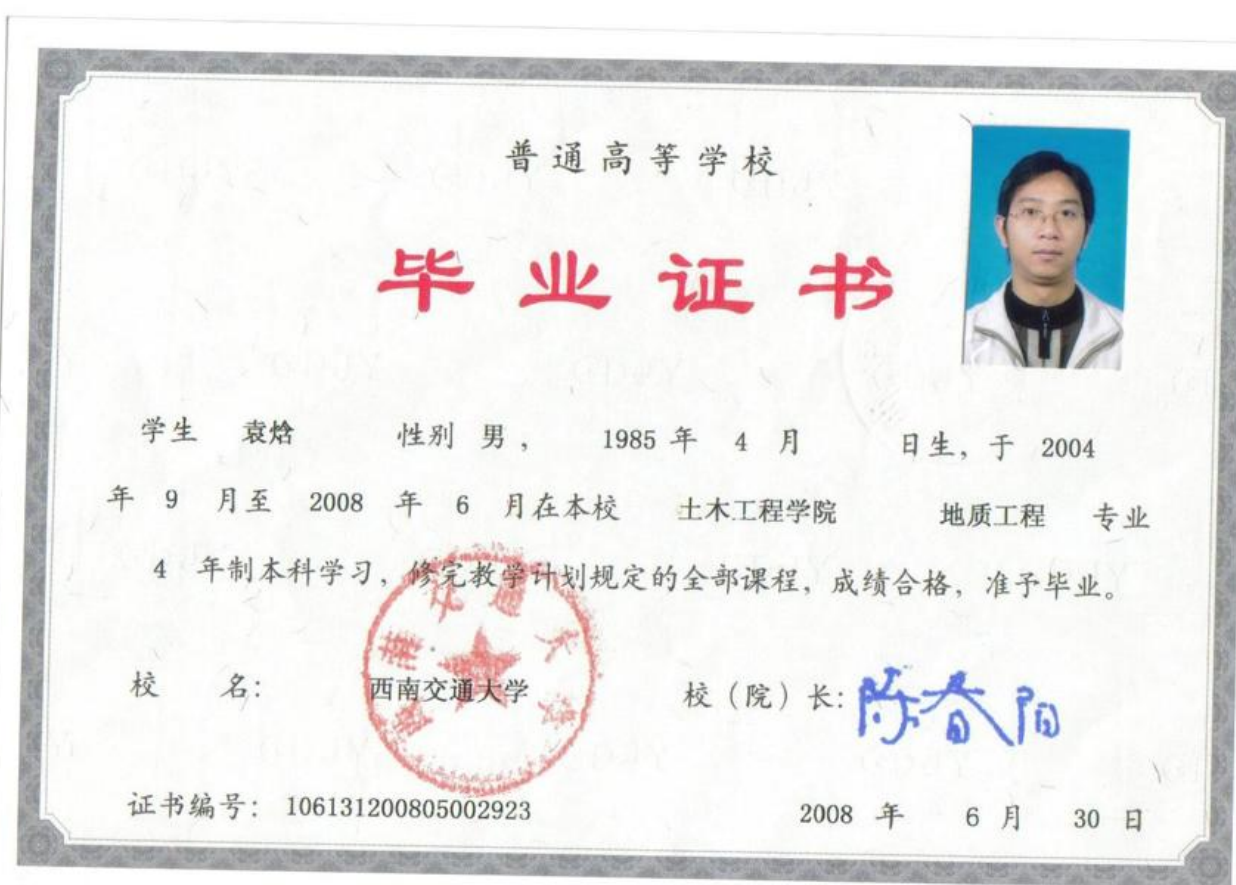 普通高等学校
毕业证书
学生 袁焓 性别 男， 1985 年 4 月 日生，于 2004
年 9 月至 2008 年 6 月在本校 土木工程学院 地质工程 专业
4 年制本科学习，修完教学计划规定的全部课程，成绩合格，准予毕业。
校 名： 西南交通大学 校（院）长：陈春阳
西南交通大学
证书编号：106131200805002923 2008 年 6 月 30 日